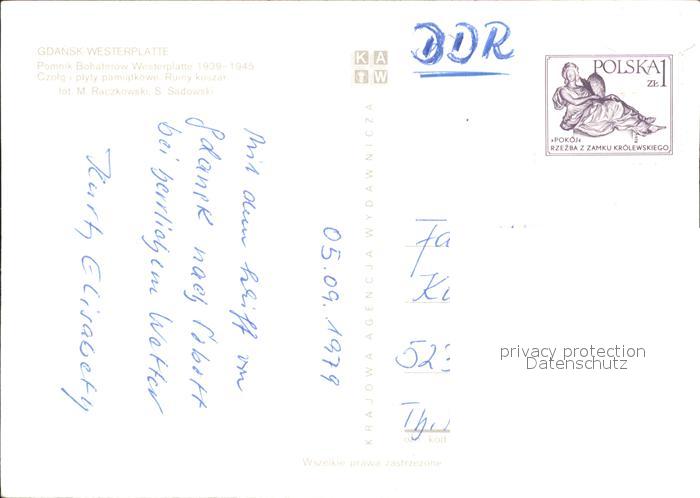 GDAŃSK WESTERPLATTE
Pomnik Bohaterów Westerplatte 1939-1945
Czołg i płyty pamiątkowe. Ruiny koszar
fot. M. Raczkowski, S. Sadowski
KAW
KRAJOWA AGENCJA WYDAWNICZA
BDR
POLSKA 1
ZŁ
»POKÓJ«
RZEŹBA Z ZAMKU KRÓLEWSKIEGO
05.09.1979
Mit dem Schiff von
Gdansk nach
bei herrlichem Wetter
Kurt, Elisabeth
Fa
Ki
523
Th
kod
privacy protection
Datenschutz
Wszelkie prawa zastrzeżone